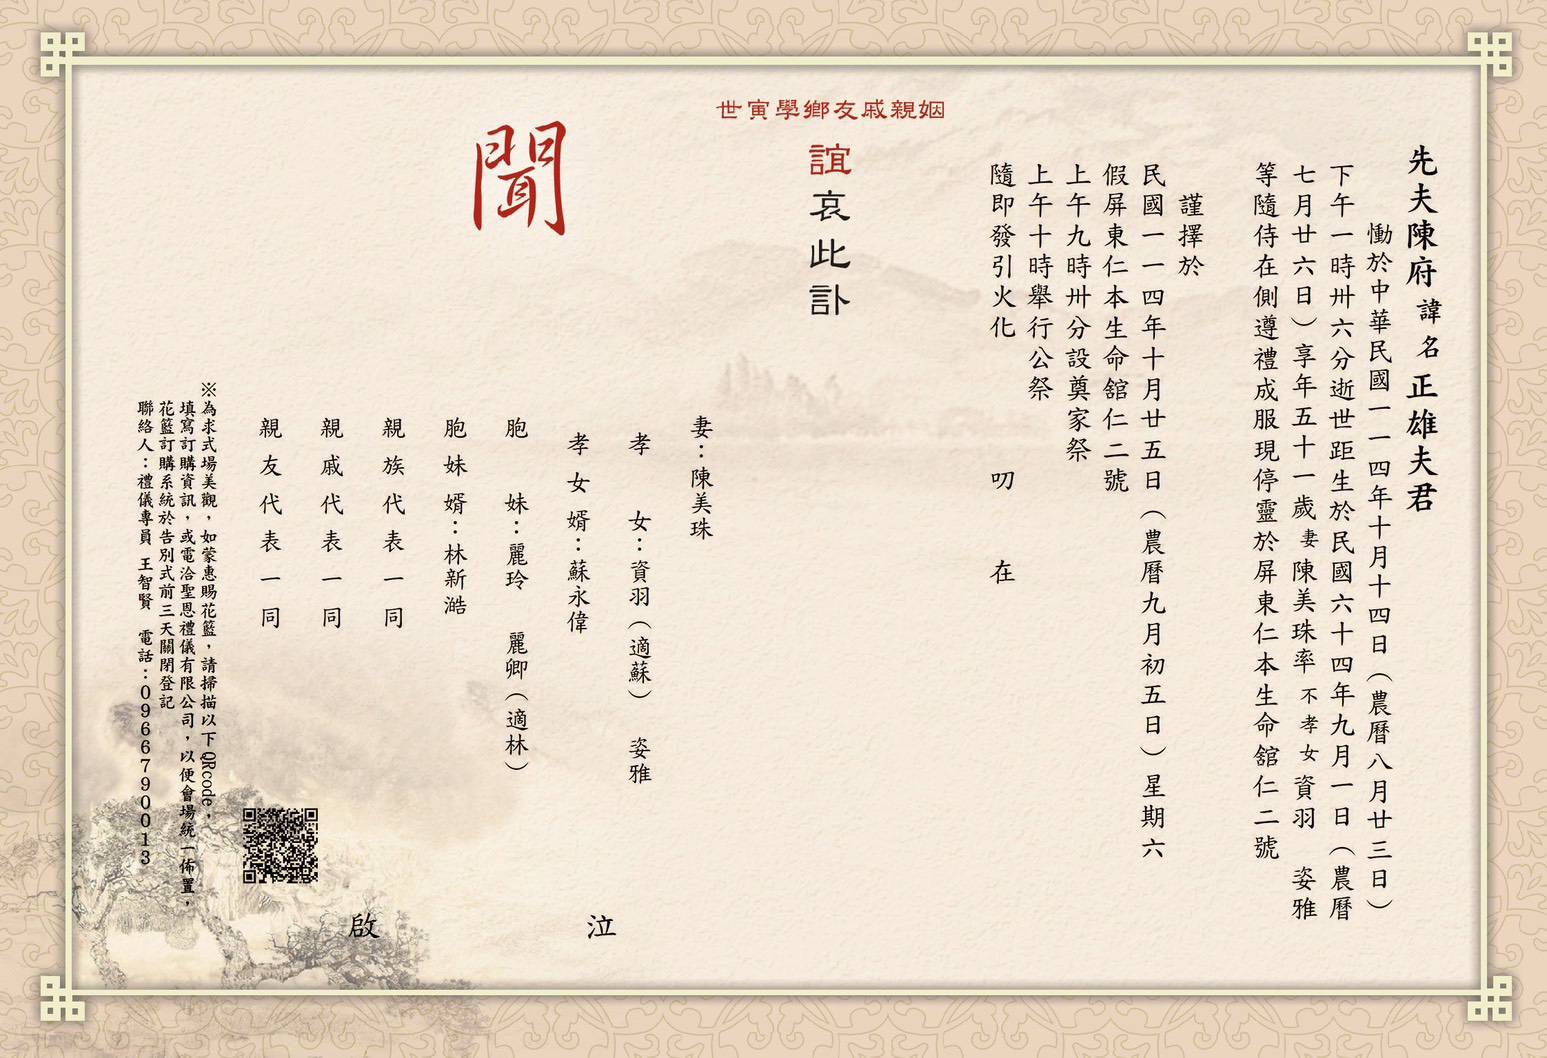 先夫陳府諱名正雄夫君
慟於中華民國一一四年十月十四日（農曆八月廿三日）
下午一時卅六分逝世距生於民國六十四年九月一日（農曆
七月廿六日）享年五十一歲妻陳美珠率不孝女資羽　姿雅
等隨侍在側遵禮成服現停靈於屏東仁本生命舘仁二號
謹擇於
民國一一四年十月廿五日（農曆九月初五日）星期六
假屏東仁本生命舘仁二號
上午九時卅分設奠家祭
上午十時舉行公祭
隨即發引火化　叨　在
世寅學鄉友戚親姻
誼哀此訃
聞
妻：陳美珠
孝　女：資羽（適蘇）　姿雅
孝女婿：蘇永偉
胞　妹：麗玲　麗卿（適林）
胞妹婿：林新澔
親族代表一同
親戚代表一同
親友代表一同
泣
啟
※為求式場美觀，如蒙惠賜花籃，請掃描以下QRcode，
填寫訂購資訊，或電洽聖恩禮儀有限公司，以便會場統一佈置，
花籃訂購系統於告別式前三天關閉登記
聯絡人：禮儀專員 王智賢　電話：0966790013